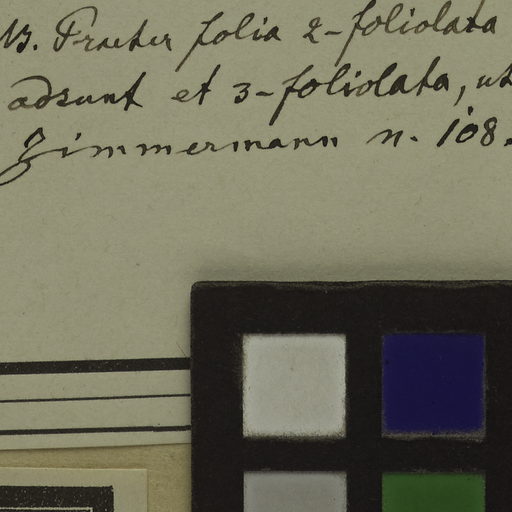 NB. Praeter folia 2-foliolata
adsunt et 3-foliolata, ut
Zimmermann n. 108.